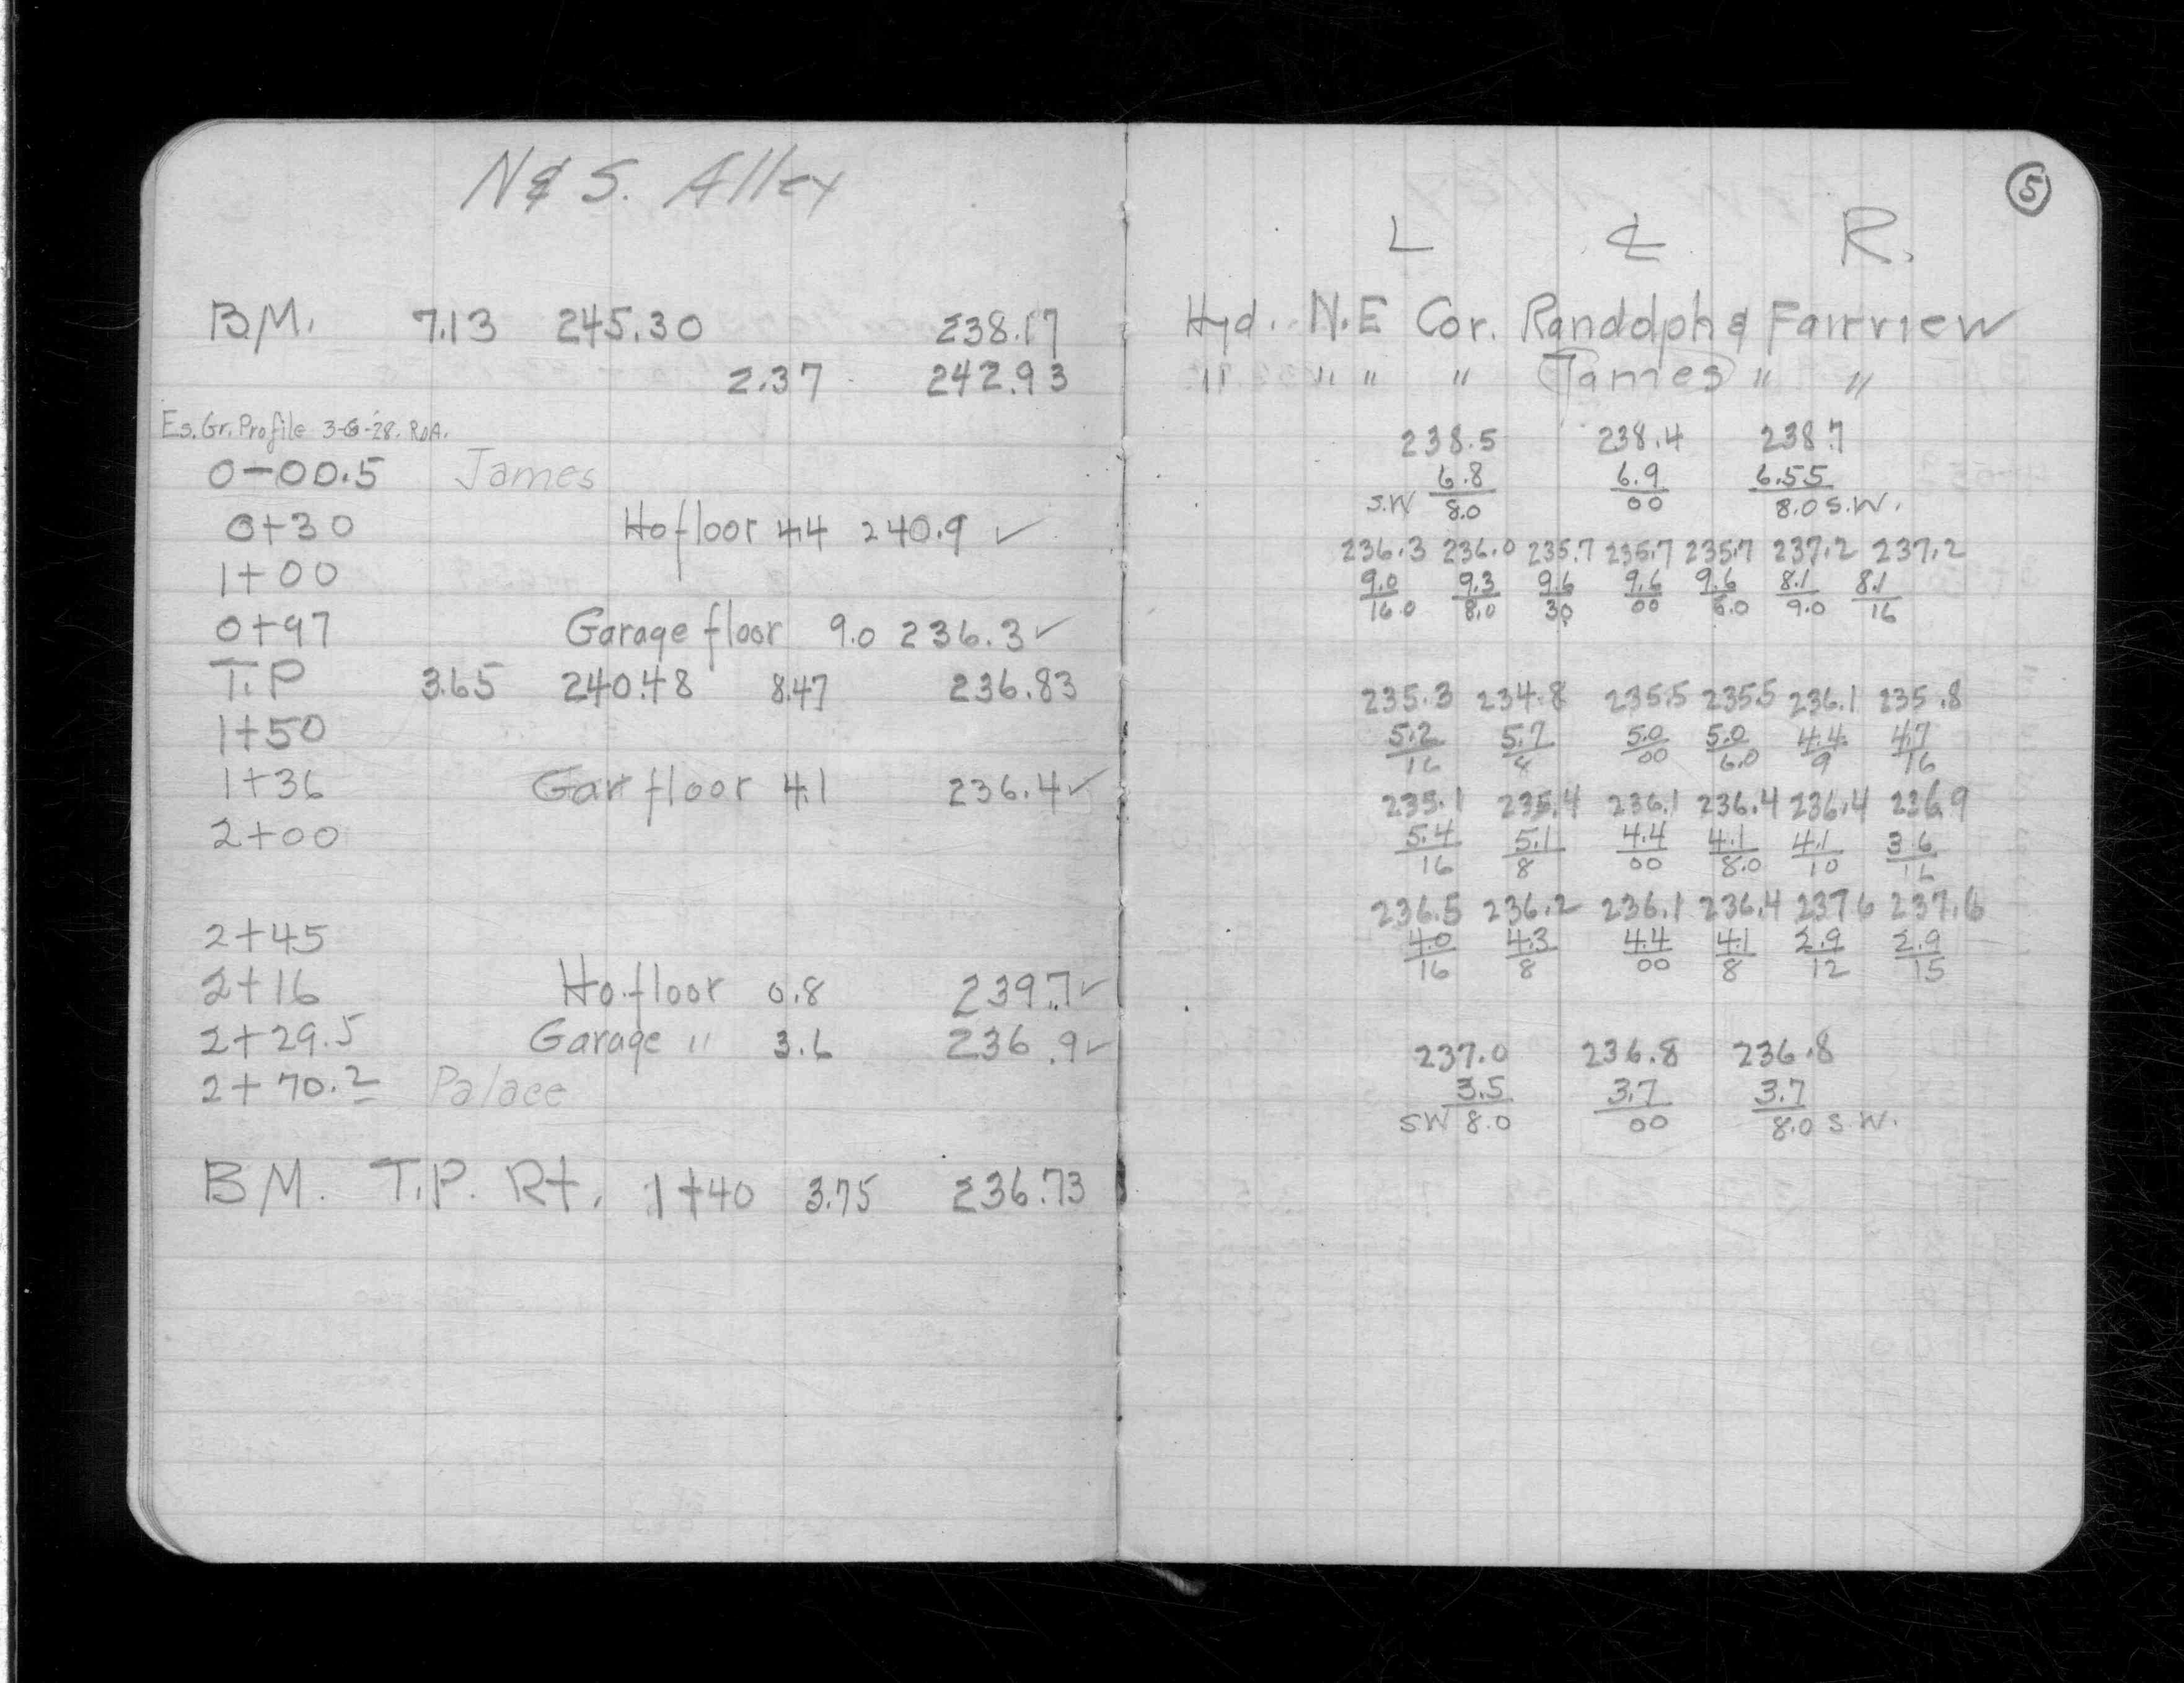 N & S. Alley
B.M. 7.13 245.30 238.17
2.37 242.93
Es. Gr. Profile 3-6-'28. RDA.
0-00.5 James
0+30 Ho floor 4.4 240.9 ✓
1+00
0+97 Garage floor 9.0 236.3 ✓
T.P 3.65 240.48 8.47 236.83
1+50
1+36 Gar floor 4.1 236.4 ✓
2+00
2+45
2+16 Ho. floor 0.8 239.7 ✓
2+29.5 Garage " 3.6 236.9 ✓
2+70.2 Palace
B M. T.P. Rt. 1+40 3.75 236.73
5
L ℄ R.
Hyd. N.E Cor. Randolph & Fairview
" " " " James " "
238.5 238.4 238.7
6.8 6.9 6.55
S.W 8.0 00 8.0 S.W.
236.3 236.0 235.7 235.7 235.7 237.2 237.2
9.0 9.3 9.6 9.6 9.6 8.1 8.1
16.0 8.0 30 00 8.0 9.0 16
235.3 234.8 235.5 235.5 236.1 235.8
5.2 5.7 5.0 5.0 4.4 4.7
16 8 00 6.0 9 16
235.1 235.4 236.1 236.4 236.4 236.9
5.4 5.1 4.4 4.1 4.1 3.6
16 8 00 8.0 10 16
236.5 236.2 236.1 236.4 237.6 237.6
4.0 4.3 4.4 4.1 2.9 2.9
16 8 00 8 12 15
237.0 236.8 236.8
3.5 3.7 3.7
SW 8.0 00 8.0 S.W.